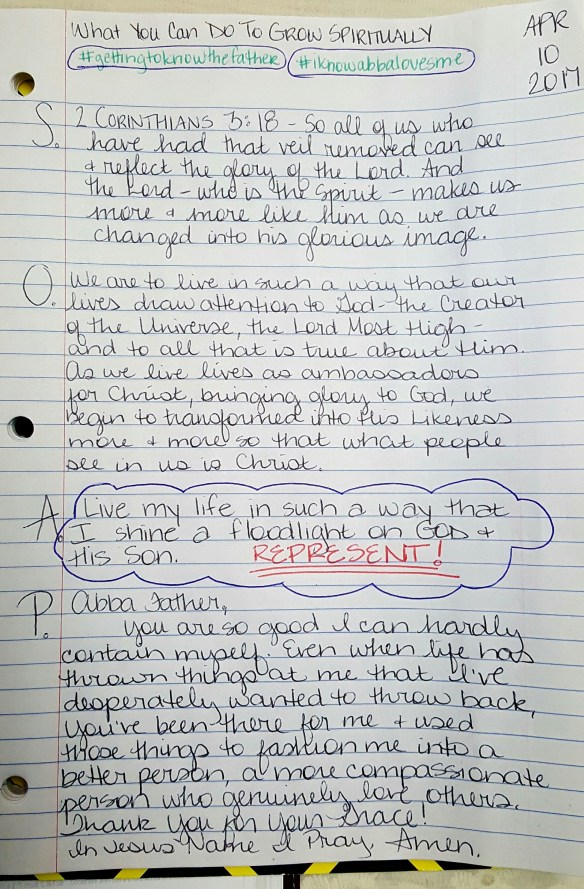 What You Can Do To Grow Spiritually
#gettingtoknowthefather #iknowabbalovesme
APR
10
2017
S. 2 Corinthians 3:18 - So all of us who
have had that veil removed can see
& reflect the glory of the Lord. And
the Lord - who is the Spirit - makes us
more & more like Him as we are
changed into his glorious image.
O. We are to live in such a way that our
lives draw attention to God - the Creator
of the Universe, the Lord Most High -
and to all that is true about Him.
As we live lives as ambassadors
for Christ, bringing glory to God, we
begin to transformed into His Likeness
more & more so that what people
see in us is Christ.
A. Live my life in such a way that
I shine a floodlight on GOD &
His Son. REPRESENT!
P. Abba Father,
You are so good I can hardly
contain myself. Even when life has
thrown things at me that I've
desperately wanted to throw back,
You've been there for me & used
those things to fashion me into a
better person, a more compassionate
person who genuinely love others.
Thank You for Your Grace!
In Jesus' Name I Pray, Amen.